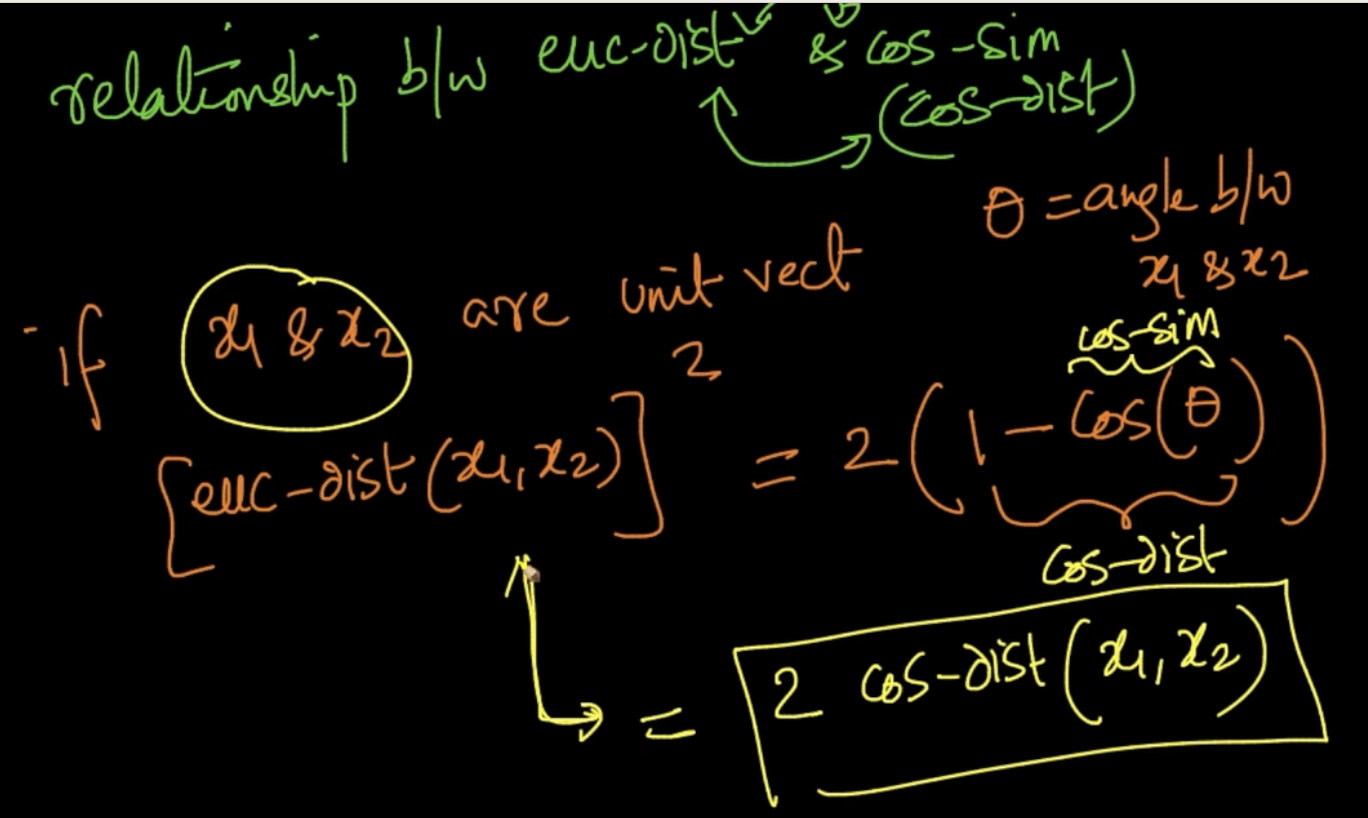 relationship b/w euc-dist & cos-sim
(cos-dist)
θ = angle b/w
x1 & x2
if x1 & x2 are unit vect
cos-sim
[euc-dist(x1,x2)]² = 2(1 - Cos(θ))
Cos-dist
= 2 cos-dist(x1,x2)